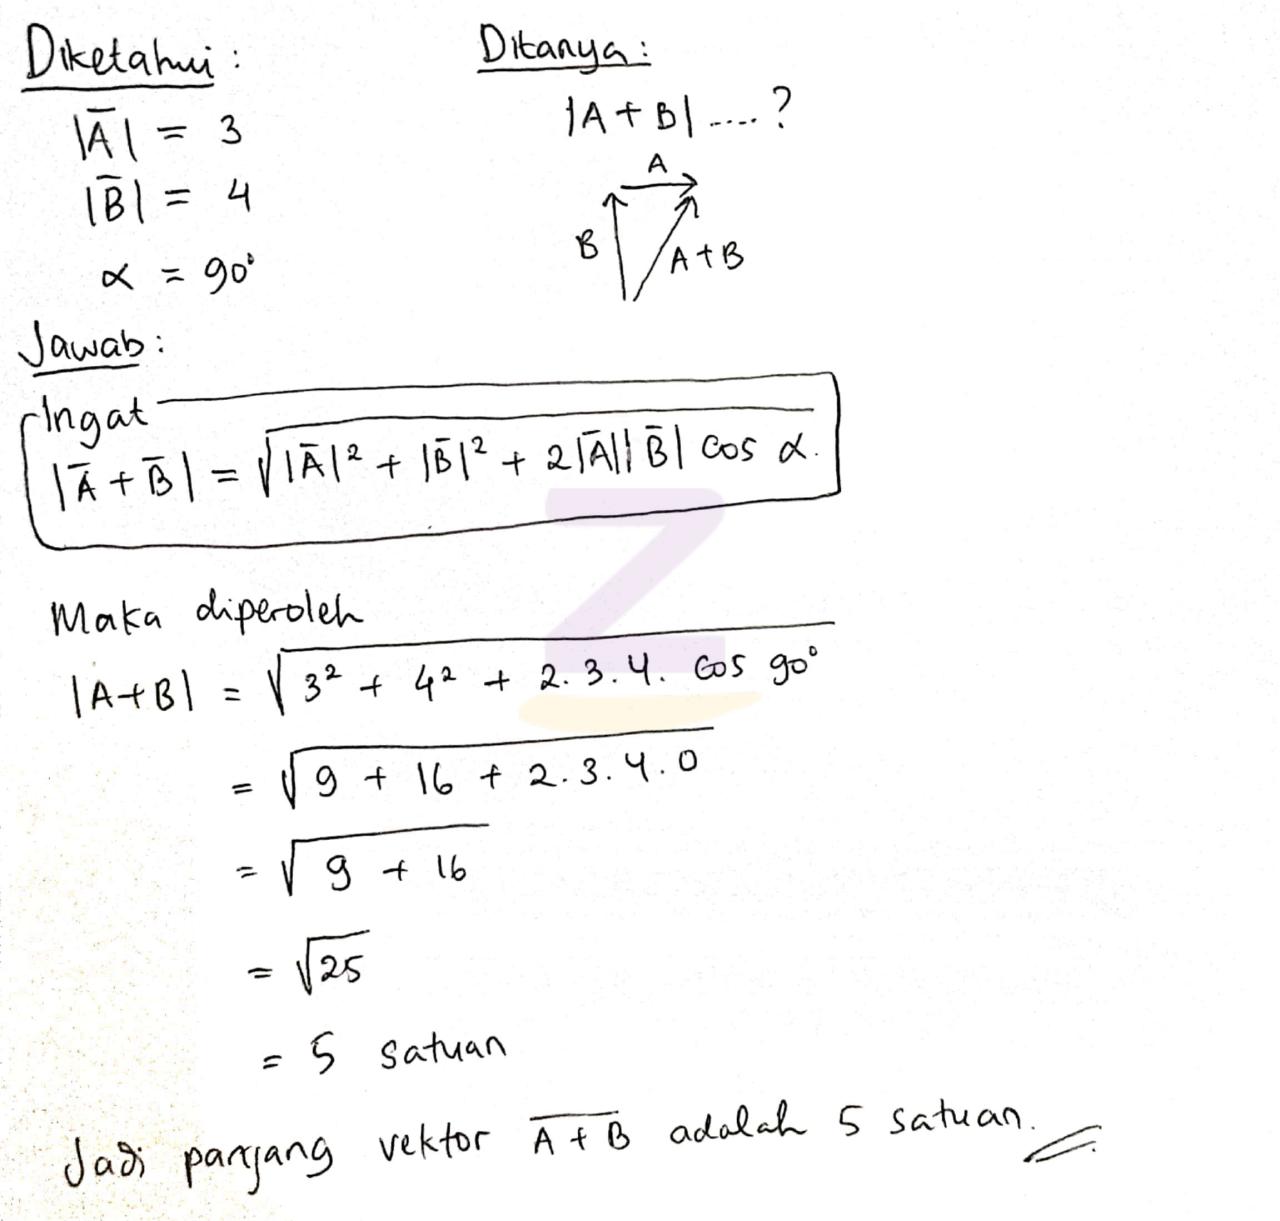 Diketahui :
|A̅| = 3
|B̅| = 4
α = 90°
Ditanya :
|A + B| ..... ?
A
B
A + B
Jawab :
Ingat
|A̅ + B̅| = √|A̅|² + |B̅|² + 2|A̅||B̅| cos α.
Maka diperoleh
|A+B| = √3² + 4² + 2.3.4. cos 90°
= √9 + 16 + 2.3.4.0
= √9 + 16
= √25
= 5 satuan
Jadi panjang vektor A̅ ̅+̅ ̅B̅ adalah 5 satuan.
Z